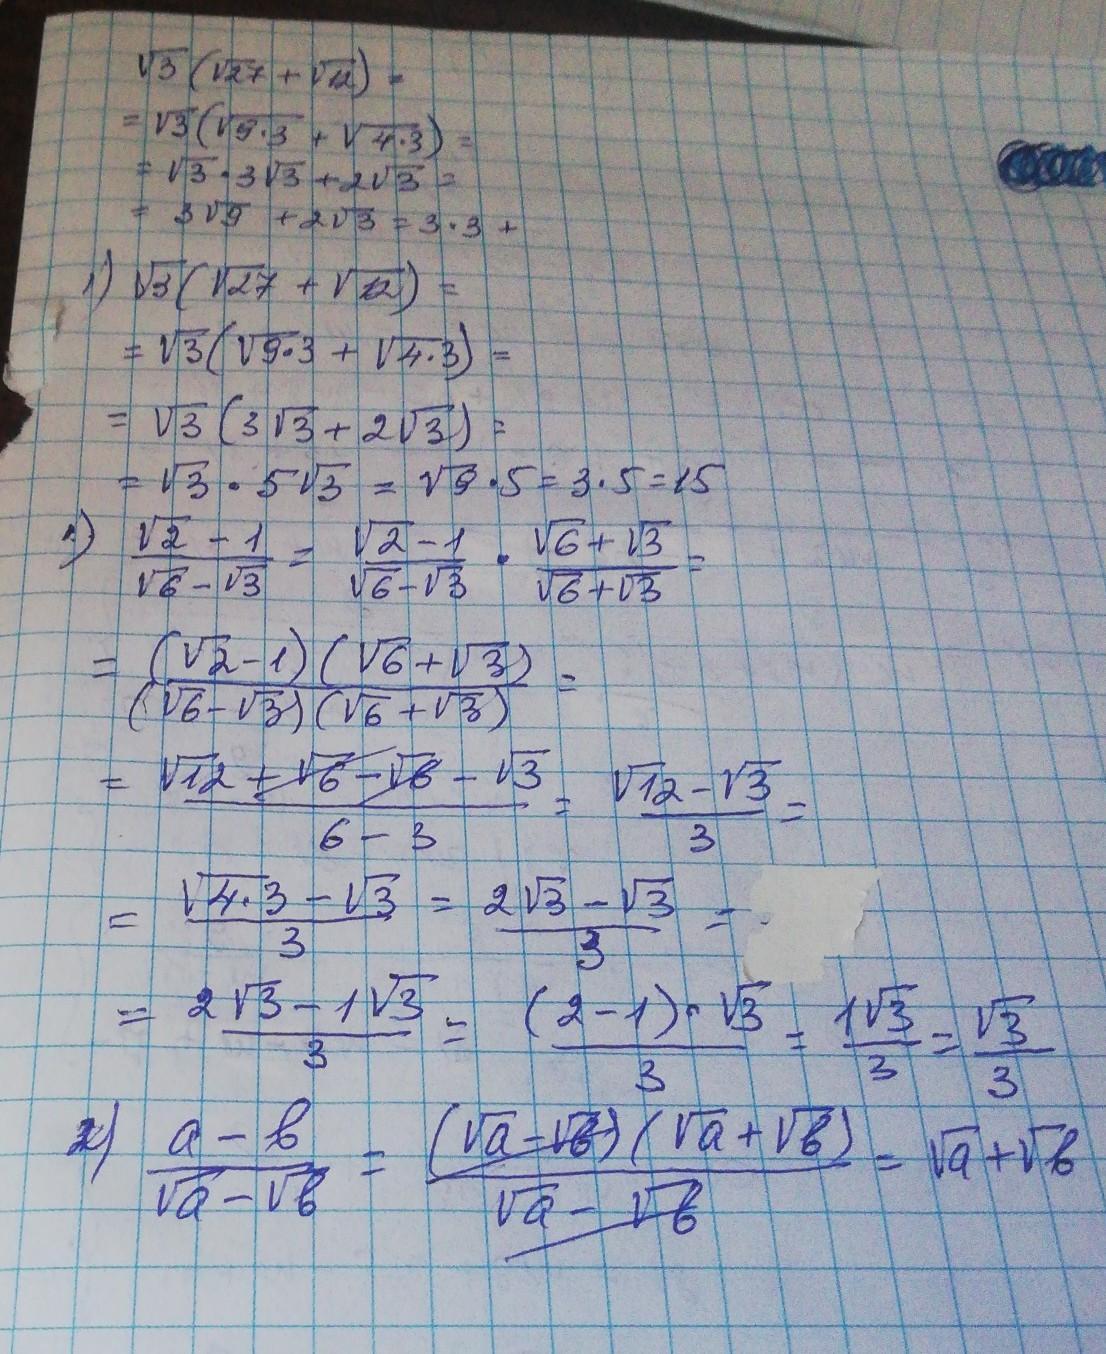 √3(√27 + √12) =
= √3(√9·3 + √4·3) =
= √3·3√3 + 2√3 =
= 3√9 + 2√3 = 3·3 +
1) √3(√27 + √12) =
= √3(√9·3 + √4·3) =
= √3(3√3 + 2√3) =
= √3·5√3 = √9·5 = 3·5 = 15
1) (√2 - 1)/(√6 - √3) = (√2 - 1)/(√6 - √3) · (√6 + √3)/(√6 + √3) =
= ((√2 - 1)(√6 + √3))/((√6 - √3)(√6 + √3)) =
= (√12 + √6 - √6 - √3)/(6 - 3) = (√12 - √3)/3 =
= (√4·3 - √3)/3 = (2√3 - √3)/3 =
= (2√3 - 1√3)/3 = ((2 - 1)·√3)/3 = 1√3/3 = √3/3
2) (a - b)/(√a - √b) = ((√a - √b)(√a + √b))/(√a - √b) = √a + √b